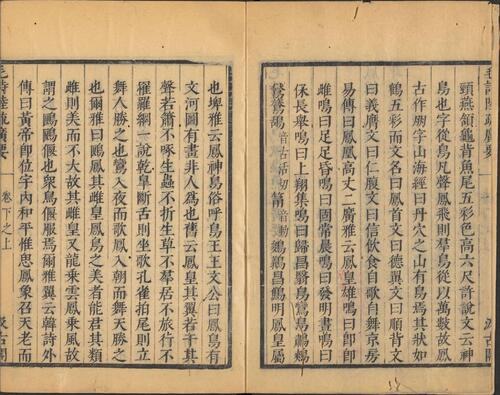 毛詩陸疏廣要
頸燕頷龜背魚尾五彩色高六尺許說文云神
鳥也字從鳥凡聲鳳飛則羣鳥從以萬數故鳳
古作朋字山海經曰丹穴之山有鳥焉其狀如
鶴五彩而文名曰鳳首文曰德翼文曰順背文
曰義膺文曰仁腹文曰信飲食自歌自舞京房
易傳曰鳳皇高丈二廣雅云鳳皇雄鳴曰卽卽
雌鳴曰足足昏鳴曰固常晨鳴曰發明晝鳴曰
保長舉鳴曰上翔集鳴曰歸昌翳鳥鸞鳥鷫鷞
音古活切 音動 明鳳皇屬
也埤雅云鳳神鳥俗呼鳥王王文公曰鳳鳥有
文河圖有畫非人爲也舊云鳳皇其翼若干其
聲若簫不啄生蟲不折生草不羣居不旅行不
罹羅網一說乾皐斷舌則坐歌孔雀拍尾則立
舞人勝之也鸞入夜而歌鳳入朝而舞天勝之
也爾雅曰鶠鳳其雌皇鳳鳥之美者能君其類
雌則美而不大故其雌皇又龍乘雲鳳乘風故
謂之鶠鶠偃也衆鳥偃服焉爾韓詩外
傳曰黃帝卽位宇內和平惟思鳳象召天老而
毛詩陸疏廣要
卷下之上
汲古閣